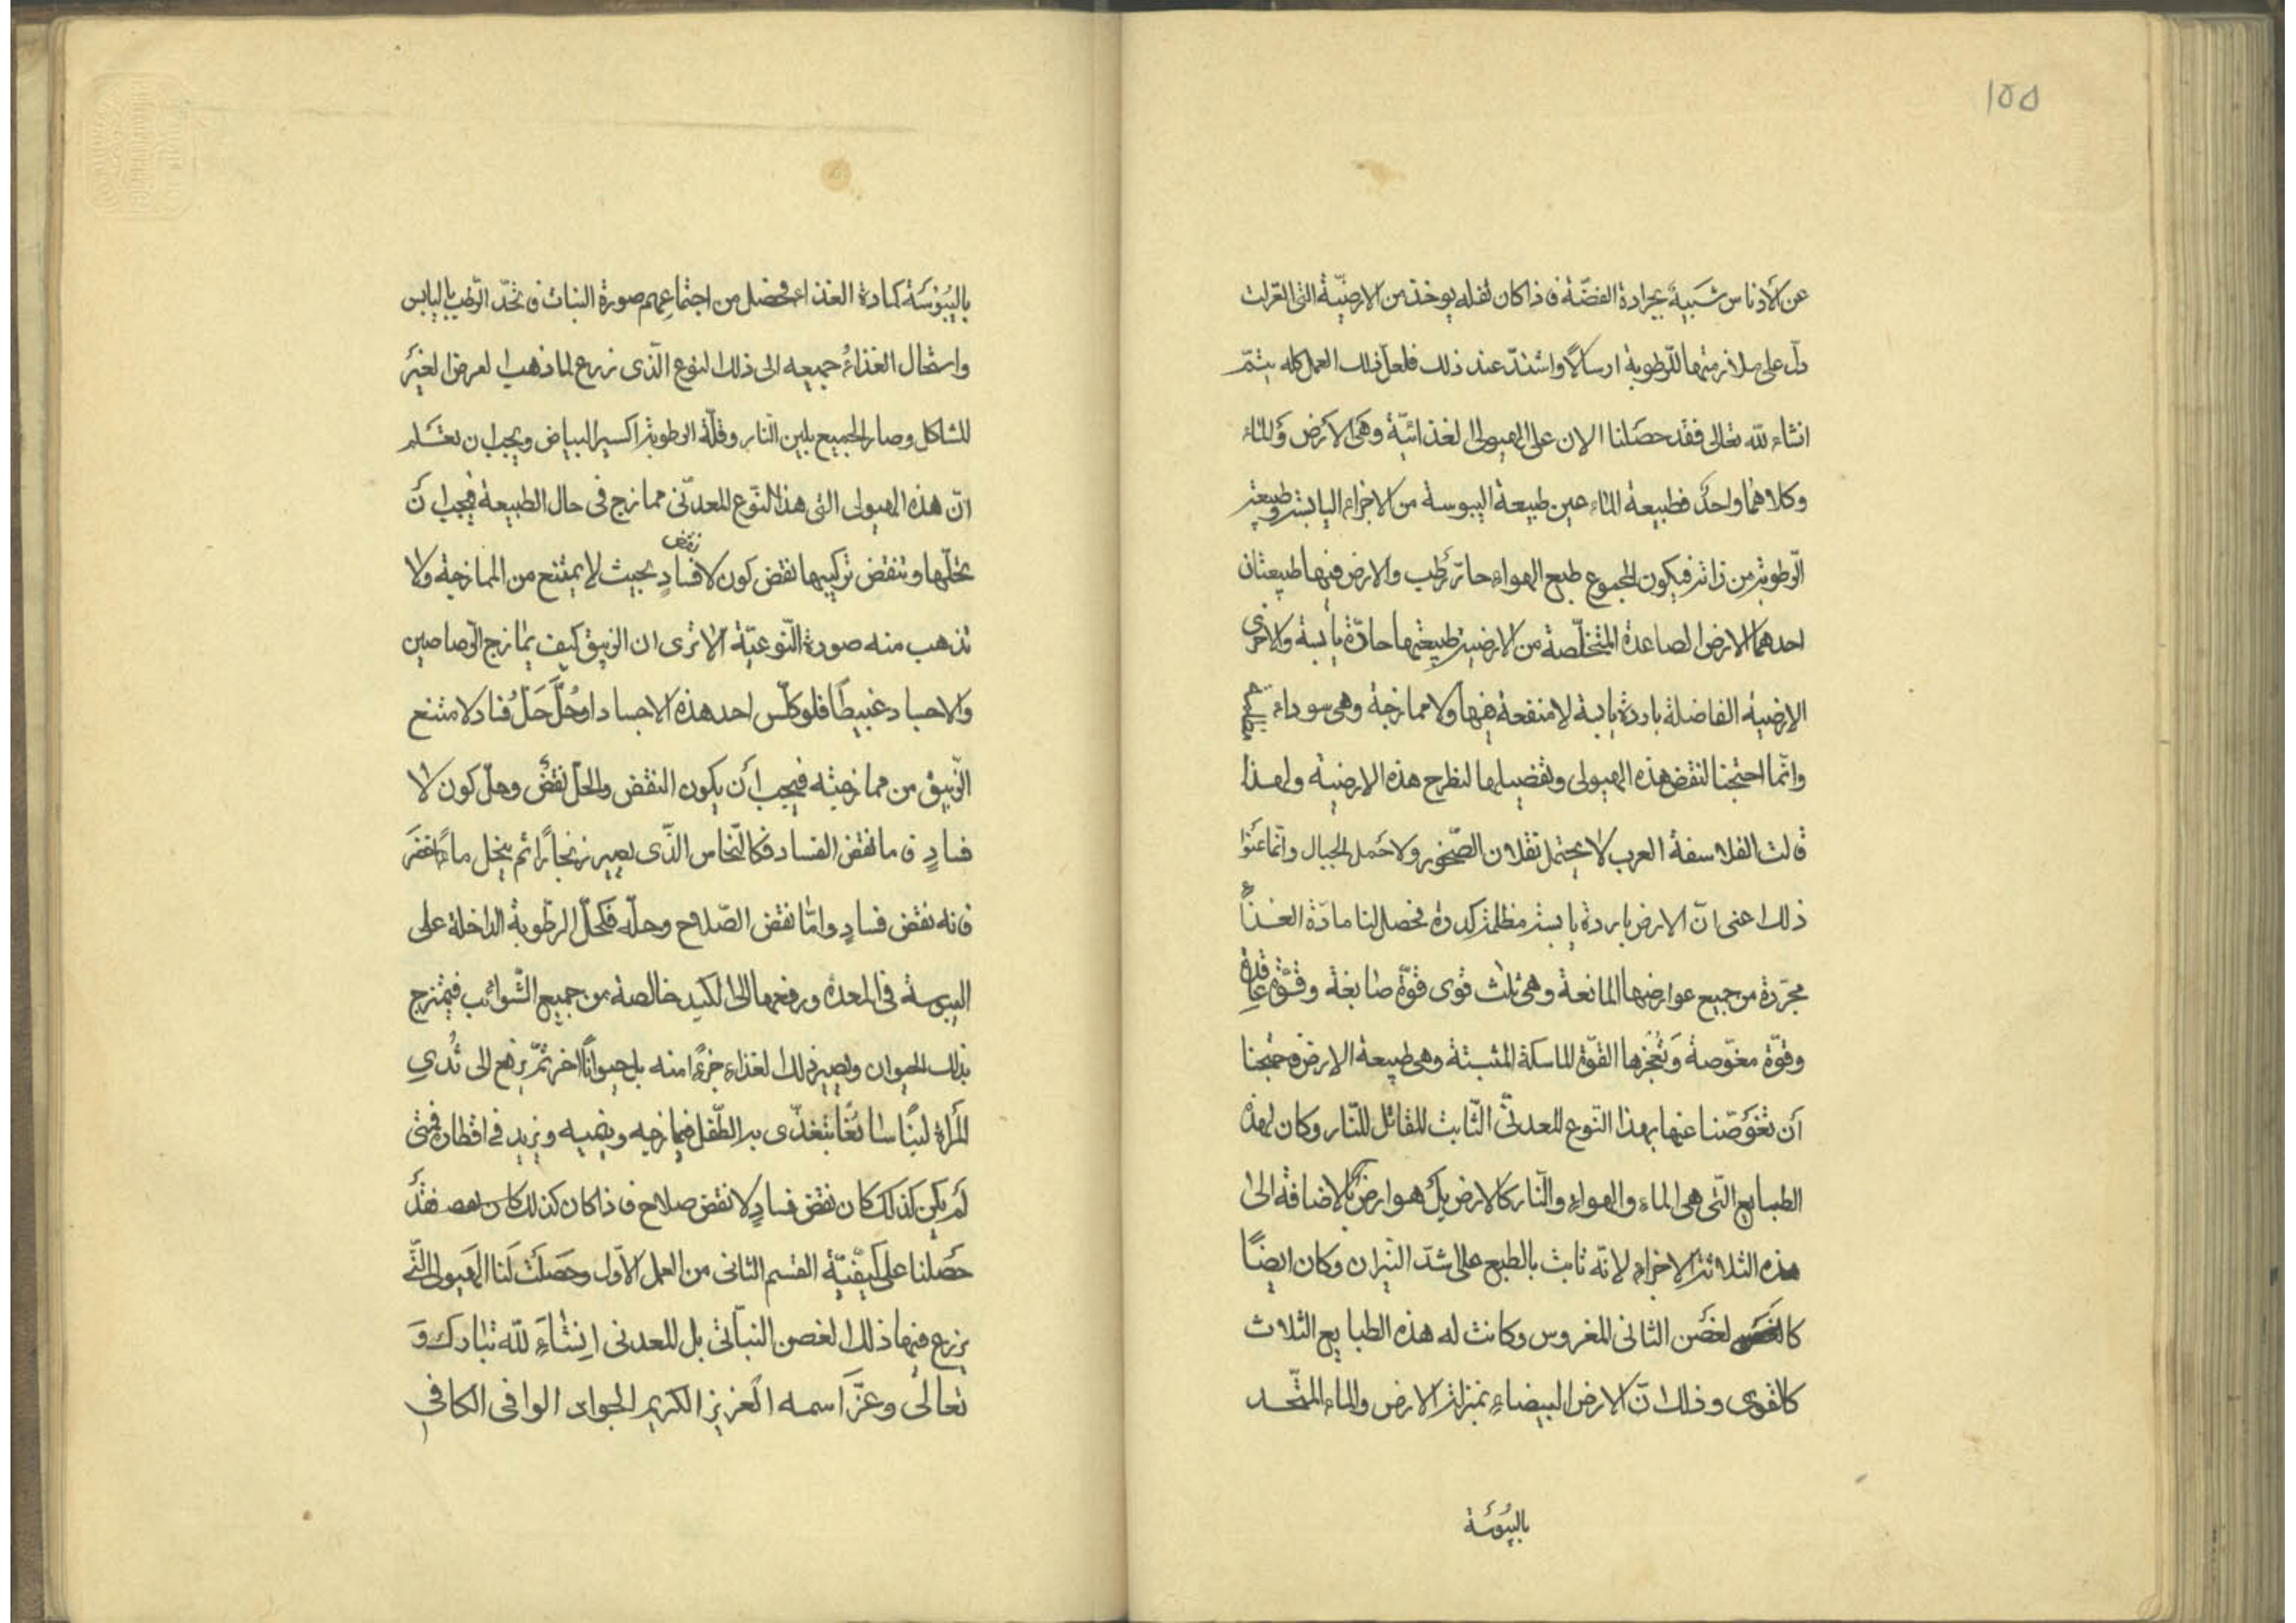 ١٥٥
عن الادناس شبيهة بجرادة الفضّة فاذا كان ثفله يوخذ من الارضيّة التى
دلّ على ملازمتها للرّطوبة ارسالًا واشتدّ عند ذلك فلعلّ ذلك العمل كله يتمّ
انشاء لله تعالى فقد حصَلنا الان على الهيولى الغذائيّة وهى الأرض وَالماء
وكلاهما واحدٌ فطبيعة الماء عين طبيعة اليبوسة من الاجزاء اليابسة وطبيعة
الرّطوبة من فيكون المجموع طبع الهواء حارّ رَطب والارض فيها طبيعتان
احدهما الارض الصاعدة المتخلّصة من الارضية طبيعتها حادّة يابسة والاخرى
الارضيه الفاضلة باردة يابسة لا منفعة فيها ولا ممازجة وهى سوداء مظلمة
وانّما احتجنا لنقض هذه الهيولى وتفصيلها لنطرح هذه الارضية ولهذا
قالت الفلاسفة العرب لا يحتمل نقلان الصّخور ولا حَمل الجبال وانّما عنَوا
ذلك اعنى انّ الارض باردة يابسة مظلمة كدرة فحصل لنا مادّة الغذاء
مجرّدة من جميع عوارضها المانعة وهى ثلث قوى قوّة صابغة وقوّة عاقدة
وقوّة مغوّصة وَتُعجزها القوّة الماسكة المثبتة وهى طبيعة الارض فاحتجنا
أن تعَوّضنا عنها بهذا النّوع المعدنّى الثّابت المقاتل للنّار وكان لهذه
الطبايع الّتى هى الماء والهواء والنّار كالارض بل هو ارضٌ بالاضافة الى
هذه الثلاثة الاجزاء لانّه ثابت بالطبع على اشدّ النّيران وكان ايضًا
لغصَن الثانى المغروس وكانت له هذه الطبايع الثلاث
كالقوى وذلك انّ الارض البيضاء بمنزلة الارض والماء المتّحد
باليبُوسَة
باليبُوْسَة كمادة الغذاء فحصل من اجتماعهم صورة النبات فاتّحدّ الرّطب باليابس
واستحال الغذاءُ جميعه الى ذلك النوع الّذى زرع لما ذهب العرض الغيرَ
المشاكل وصار الجميع بلين النّار وقلّة الرطوبة اكسير البياض ويجب ان تعَلم
انّ هذه الهيولى التى هذا النّوع المعدنّى ممازج فى حال الطبيعة فيجب أنَ
تحلّها وتنقض تركيبها نقض كون لا نقض فسادٍ بحيث لا يمتنع من الممازجة ولا
تذهب منه صورة النّوعيّة الا ترى ان الزيبق كيف يمازج الرّصاصين
والاجساد غبيطًا فلو كلّس احد هذه الاجساد او حُلَّ حَلّ فساد لامتنع
الزّيبق من ممازجته فيجب أن يكون النقض والحلّ نقضٌ وحلّ كون لا
فسادٍ فاما نقض الفساد فكالنّحاس الذّى يصير زنجارًا ثم ينحل ماءً
فانه نقض فسادٍ وامّا نقض الصّلاح وحلّه فَكحَلّ الرّطوبة الداخلة على
اليبوسة فى المعدة ورفعها الى الكبد خالصة من جميع الشّوائب فيمتزج
بذلك الحيوان ويصير ذلك الغذاء جزءً امنه بل حيوانًا اخر ثمّ يرفع الى ثُديِ
المَراة لبنًا سائغًا يتغذّى به الطّفل فيمازجه وينميه ويزيد فى اقطاره فمتى
لَم يكن كَذلكَ كان نقض فسادٍ لا نقض صلاح فاذا كان كذلك فقَد
حصَلنا على كَيفيّة القسم الثانى من العمل الأوّل وحَصَلَت لَنا الهَيولى الّتى
يزرع فيها ذلك الغصن النباتّى بل المعدنى انشَاءَ للّه تبارك وَ
تعالىٰ وعَزَّ اسمه العَزيز الكريم الجواد الوافى الكافى